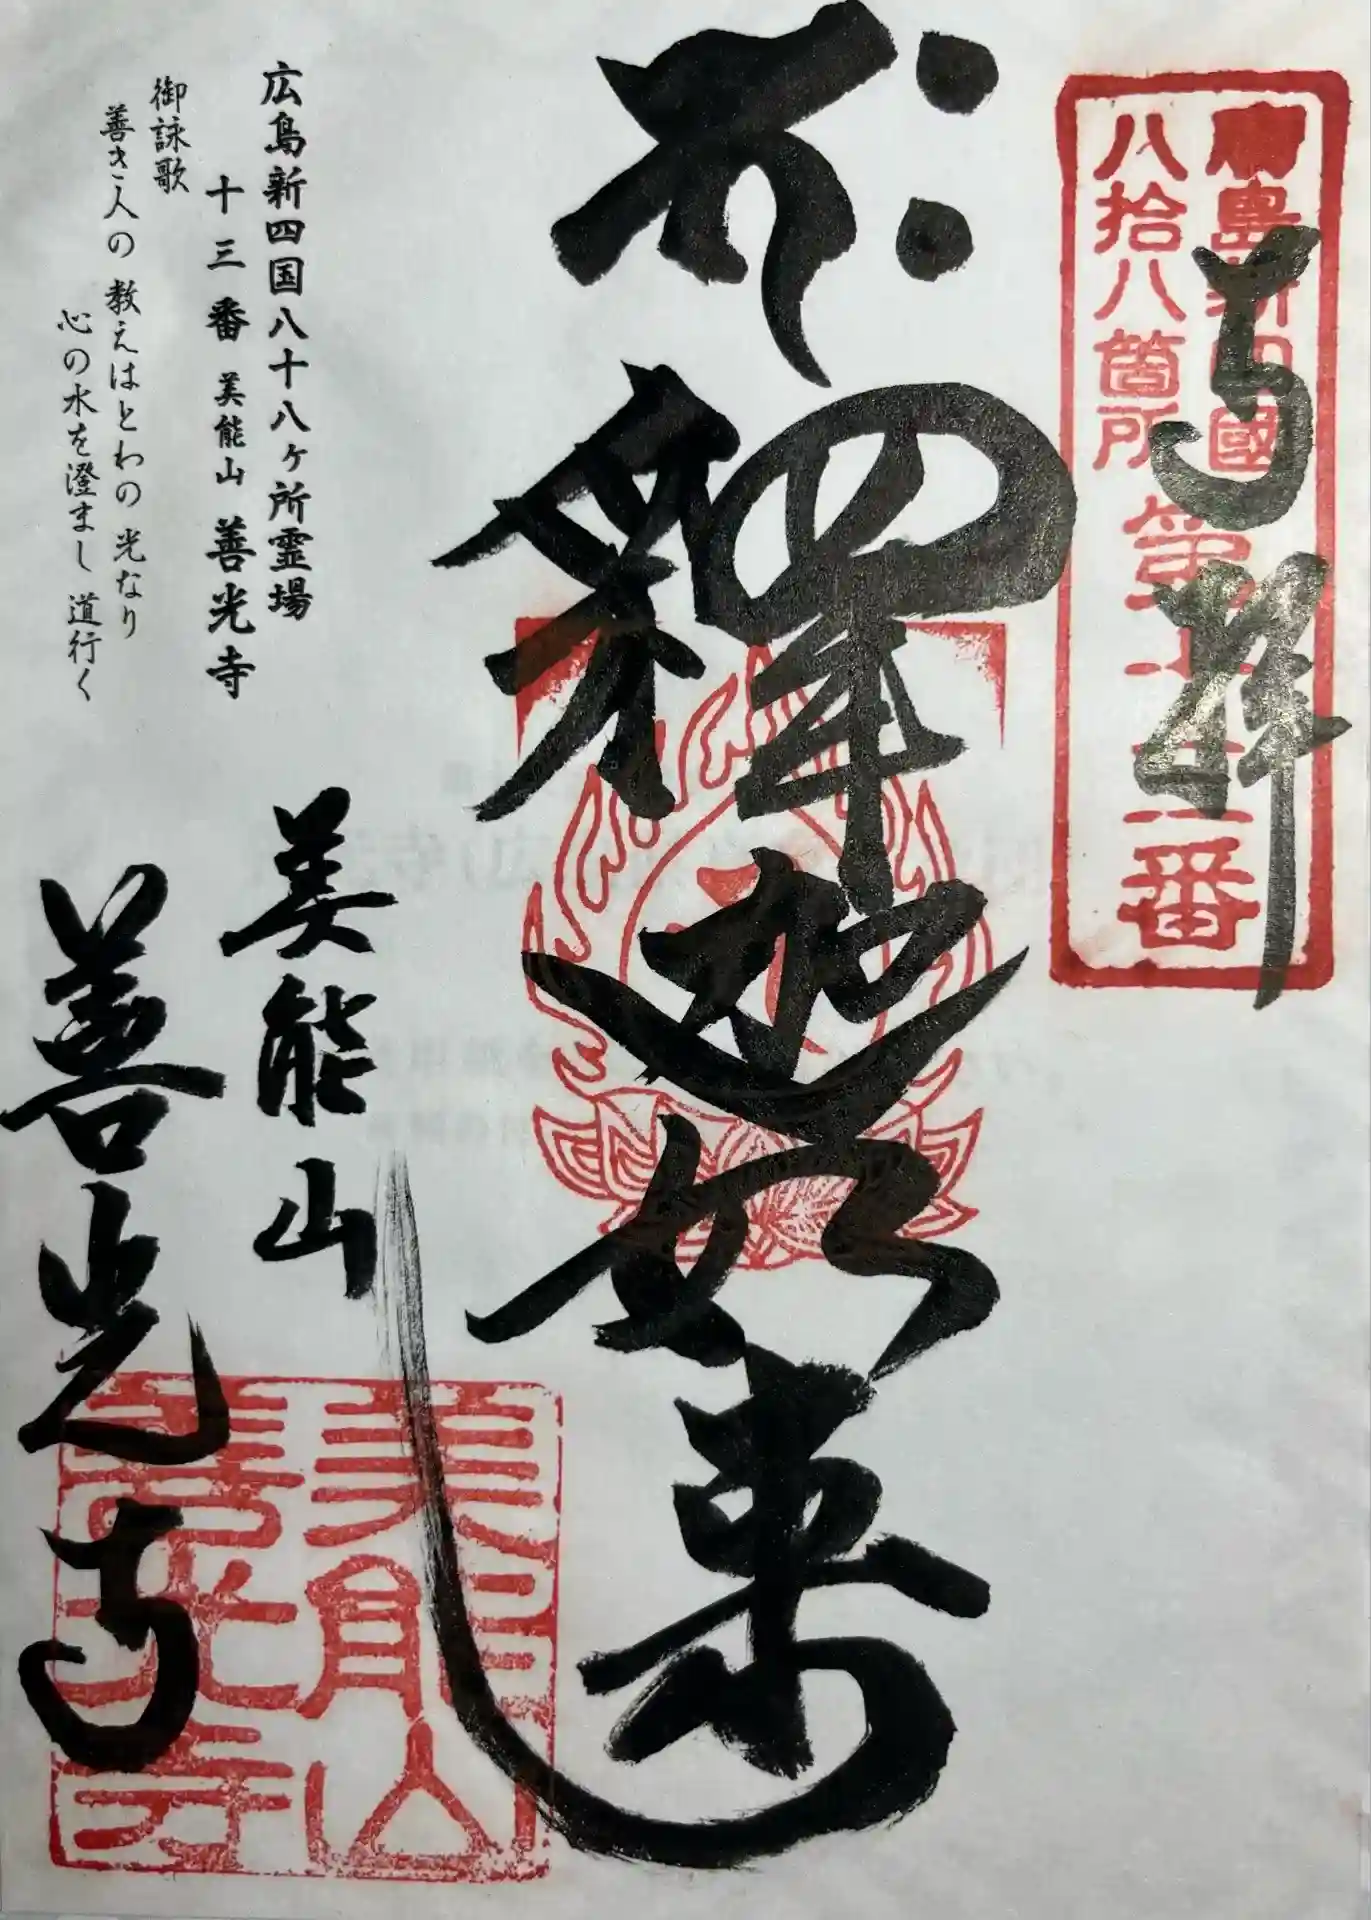 廣島新四國
八拾八箇所
第十三番
奉拝
釋迦如来
美能山
善光寺
美能山
善光寺
広島新四国八十八ヶ所霊場
十三番 美能山 善光寺
御詠歌
善き人の 教えはとわの 光なり
心の水を澄まし 道行く